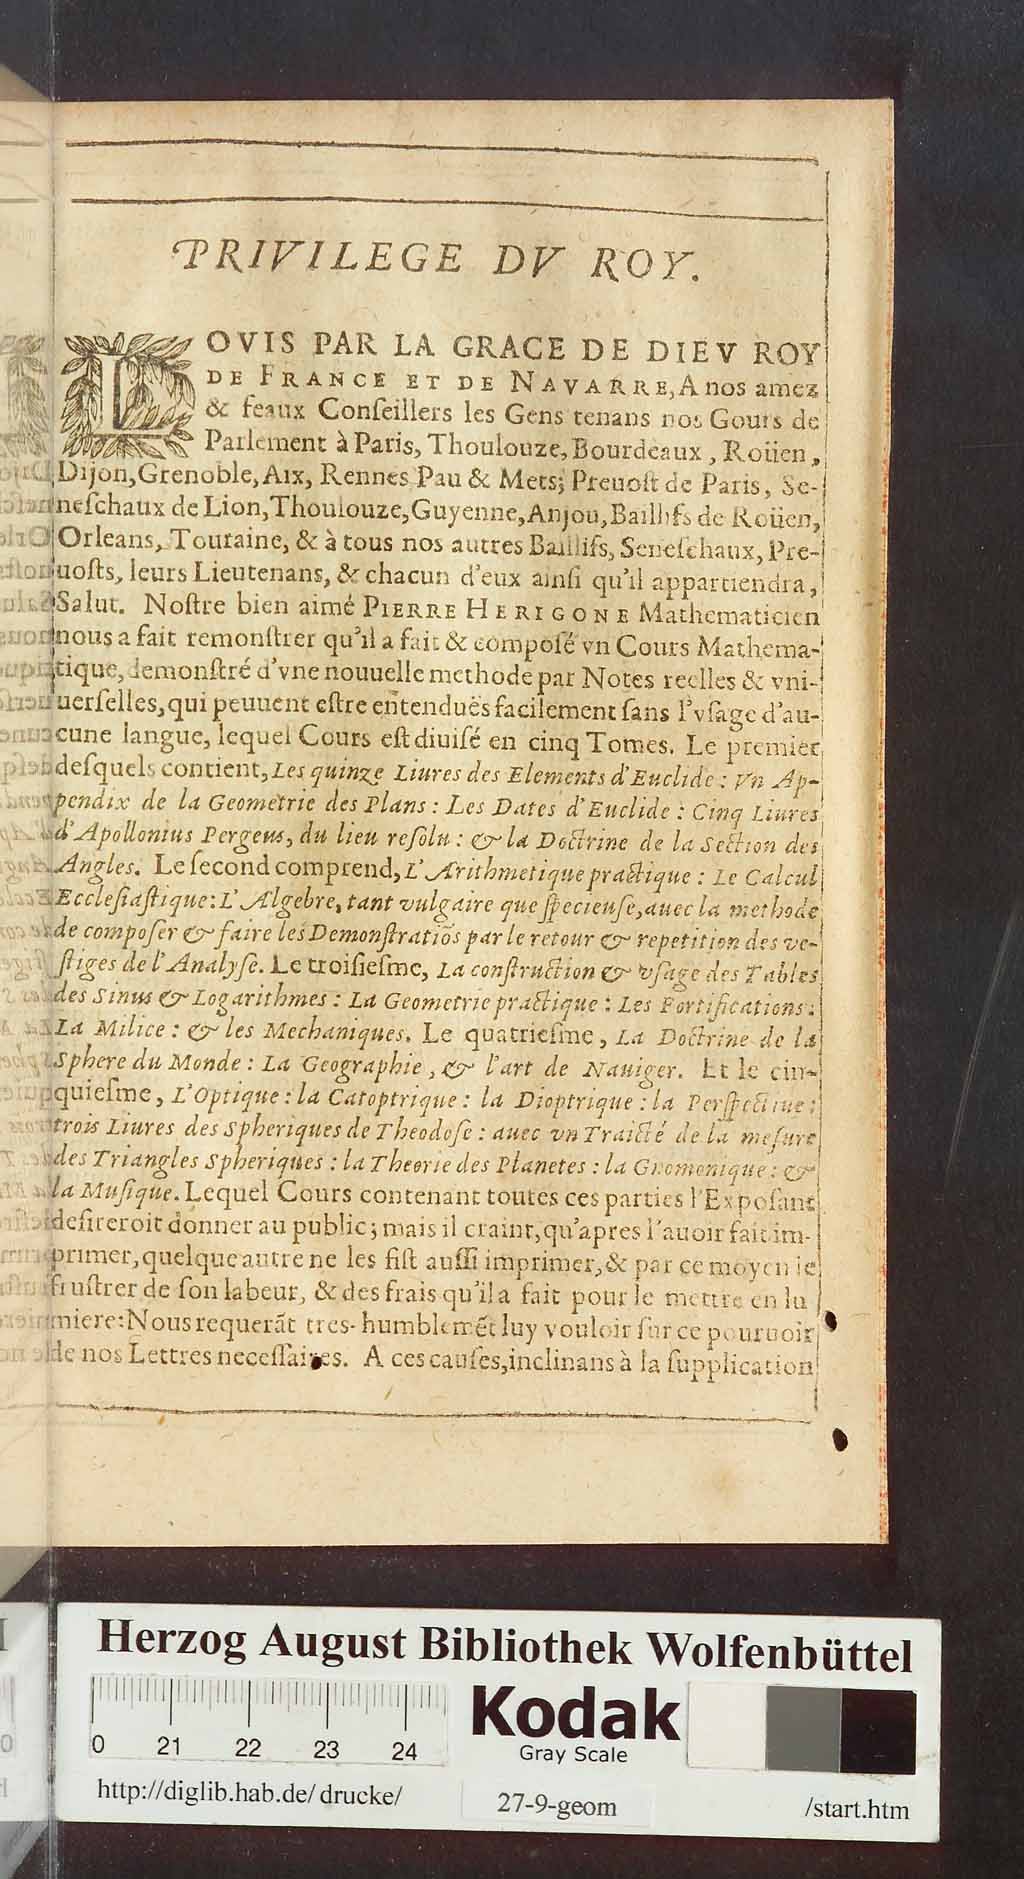 PRIVILEGE DV ROY.
LOVIS PAR LA GRACE DE DIEV ROY
DE FRANCE ET DE NAVARRE, A nos amez
& feaux Conſeillers les Gens tenans nos Gours de
Parlement à Paris, Thoulouze, Bourdeaux, Roüen,
Dijon, Grenoble, Aix, Rennes Pau & Mets; Preuoſt de Paris, Se-
neſchaux de Lion, Thoulouze, Guyenne, Anjou, Baillifs de Roüen,
Orleans, Touraine, & à tous nos autres Baillifs, Seneſchaux, Pre-
uoſts, leurs Lieutenans, & chacun d'eux ainſi qu'il appartiendra,
Salut. Noſtre bien aimé PIERRE HERIGONE Mathematicien
nous a fait remonſtrer qu'il a fait & compoſé vn Cours Mathema-
tique, demonſtré d'vne nouuelle methode par Notes reelles & vni-
uerſelles, qui peuuent eſtre entenduës facilement ſans l'vſage d'au-
cune langue, lequel Cours eſt diuiſé en cinq Tomes. Le premier
deſquels contient, Les quinze Liures des Elements d'Euclide: Vn Ap-
pendix de la Geometrie des Plans: Les Dates d'Euclide: Cinq Liures
d'Apollonius Pergeus, du lieu reſolu: & la Doctrine de la Section des
Angles. Le ſecond comprend, L'Arithmetique practique: Le Calcul
Eccleſiaſtique: L'Algebre, tant vulgaire que ſpecieuſe, auec la methode
de compoſer & faire les Demonſtratiõs par le retour & repetition des ve-
ſtiges de l'Analyſe. Le troiſieſme, La conſtruction & vſage des Tables
des Sinus & Logarithmes: La Geometrie practique: Les Fortifications:
La Milice: & les Mechaniques. Le quatrieſme, La Doctrine de la
Sphere du Monde: La Geographie, & l'art de Nauiger. Et le cin-
quieſme, L'Optique: la Catoptrique: la Dioptrique: la Perſpectiue:
trois Liures des Spheriques de Theodoſe: auec vn Traicté de la meſure
des Triangles Spheriques: la Theorie des Planetes: la Gnomonique: &
la Muſique. Lequel Cours contenant toutes ces parties l'Expoſant
deſireroit donner au public; mais il craint, qu'apres l'auoir fait im-
primer, quelque autre ne les fiſt auſſi imprimer, & par ce moyen le
fruſtrer de ſon labeur, & des frais qu'il a fait pour le mettre en lu
miere: Nous requerãt tres-humblemẽt luy vouloir ſur ce pouruoir
de nos Lettres neceſſaires. A ces cauſes, inclinans à la ſupplication
Herzog August Bibliothek Wolfenbüttel
0 21 22 23 24
Kodak
Gray Scale
http://diglib.hab.de/drucke/ 27-9-geom /start.htm